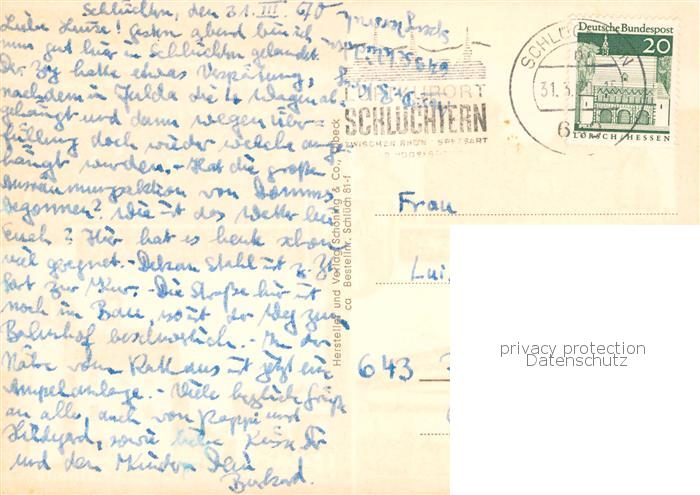 Schlüchtern, den 31. III. 60
Liebe Luise! Gestern abend bin ich
nun gut hier in Schlüchtern gelandet.
Der Zug hatte etwas Verspätung,
nachdem in Fulda die 4 Wagen ab-
gehängt und dann wegen über-
füllung doch wieder welche ange-
hängt wurden. - Hat die große
Ausräumungsaktion von
begonnen? Wie ist das Wetter bei
Euch? Hier hat es heute schon
viel geregnet. - Dekan Stahl ist z. Zt.
fort zur Kur. - Die Straße hier ist
noch im Bau, so ist der Weg zum
Bahnhof beschwerlich. - In der
Nähe vom Rathaus ist jetzt eine
Ampelanlage. - Viele herzliche Grüße
an alle, auch von Pappi und
Hildegard, sowie liebe Küsse Dir
und den Kindern Dein
Burkard.
Hersteller und Verlag Schöning & Co., Lübeck
ca Bestellnr. Schlüch 81-f
SCHLÜCHTERN
ZWISCHEN RHÖN SPESSART
SCHLÜCHTERN
31.3.
Deutsche Bundespost
20
LORSCH/HESSEN
Frau
Lui
643
privacy protection
Datenschutz